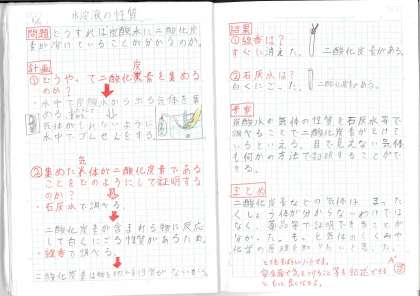 水溶液の性質
問題 どうすれば炭酸水に二酸化炭
素が溶けていることが分かるのか。
計画
①どうやって二酸化炭素を集める
のか？
・水中で炭酸水から出る気体を集
める
気体がもれないように
水中でゴムせんをする。
②集めた気体が二酸化炭素である
ことをどのようにして証明する
のか？
・石灰水で調べる。
二酸化炭素が含まれる物に反応
して白くにごる性質があるため。
・線香で調べる。
結果
①線香は？
すぐに消えた。 二酸化炭素がある。
②石灰水は？
白くにごった。 二酸化炭素がある。
考察
炭酸水の気体の性質を石灰水等で
調べることで二酸化炭素がとけて
いるといえる。目で見えない気体
も何かの方法で証明することができ
る。
まとめ
二酸化炭素などの気体は、まった
くしょう体が分からないわけでは
なく、薬品等で証明できることが
分かった。もっと気体のしくみや
化学の
とてもすばらしいノートです。